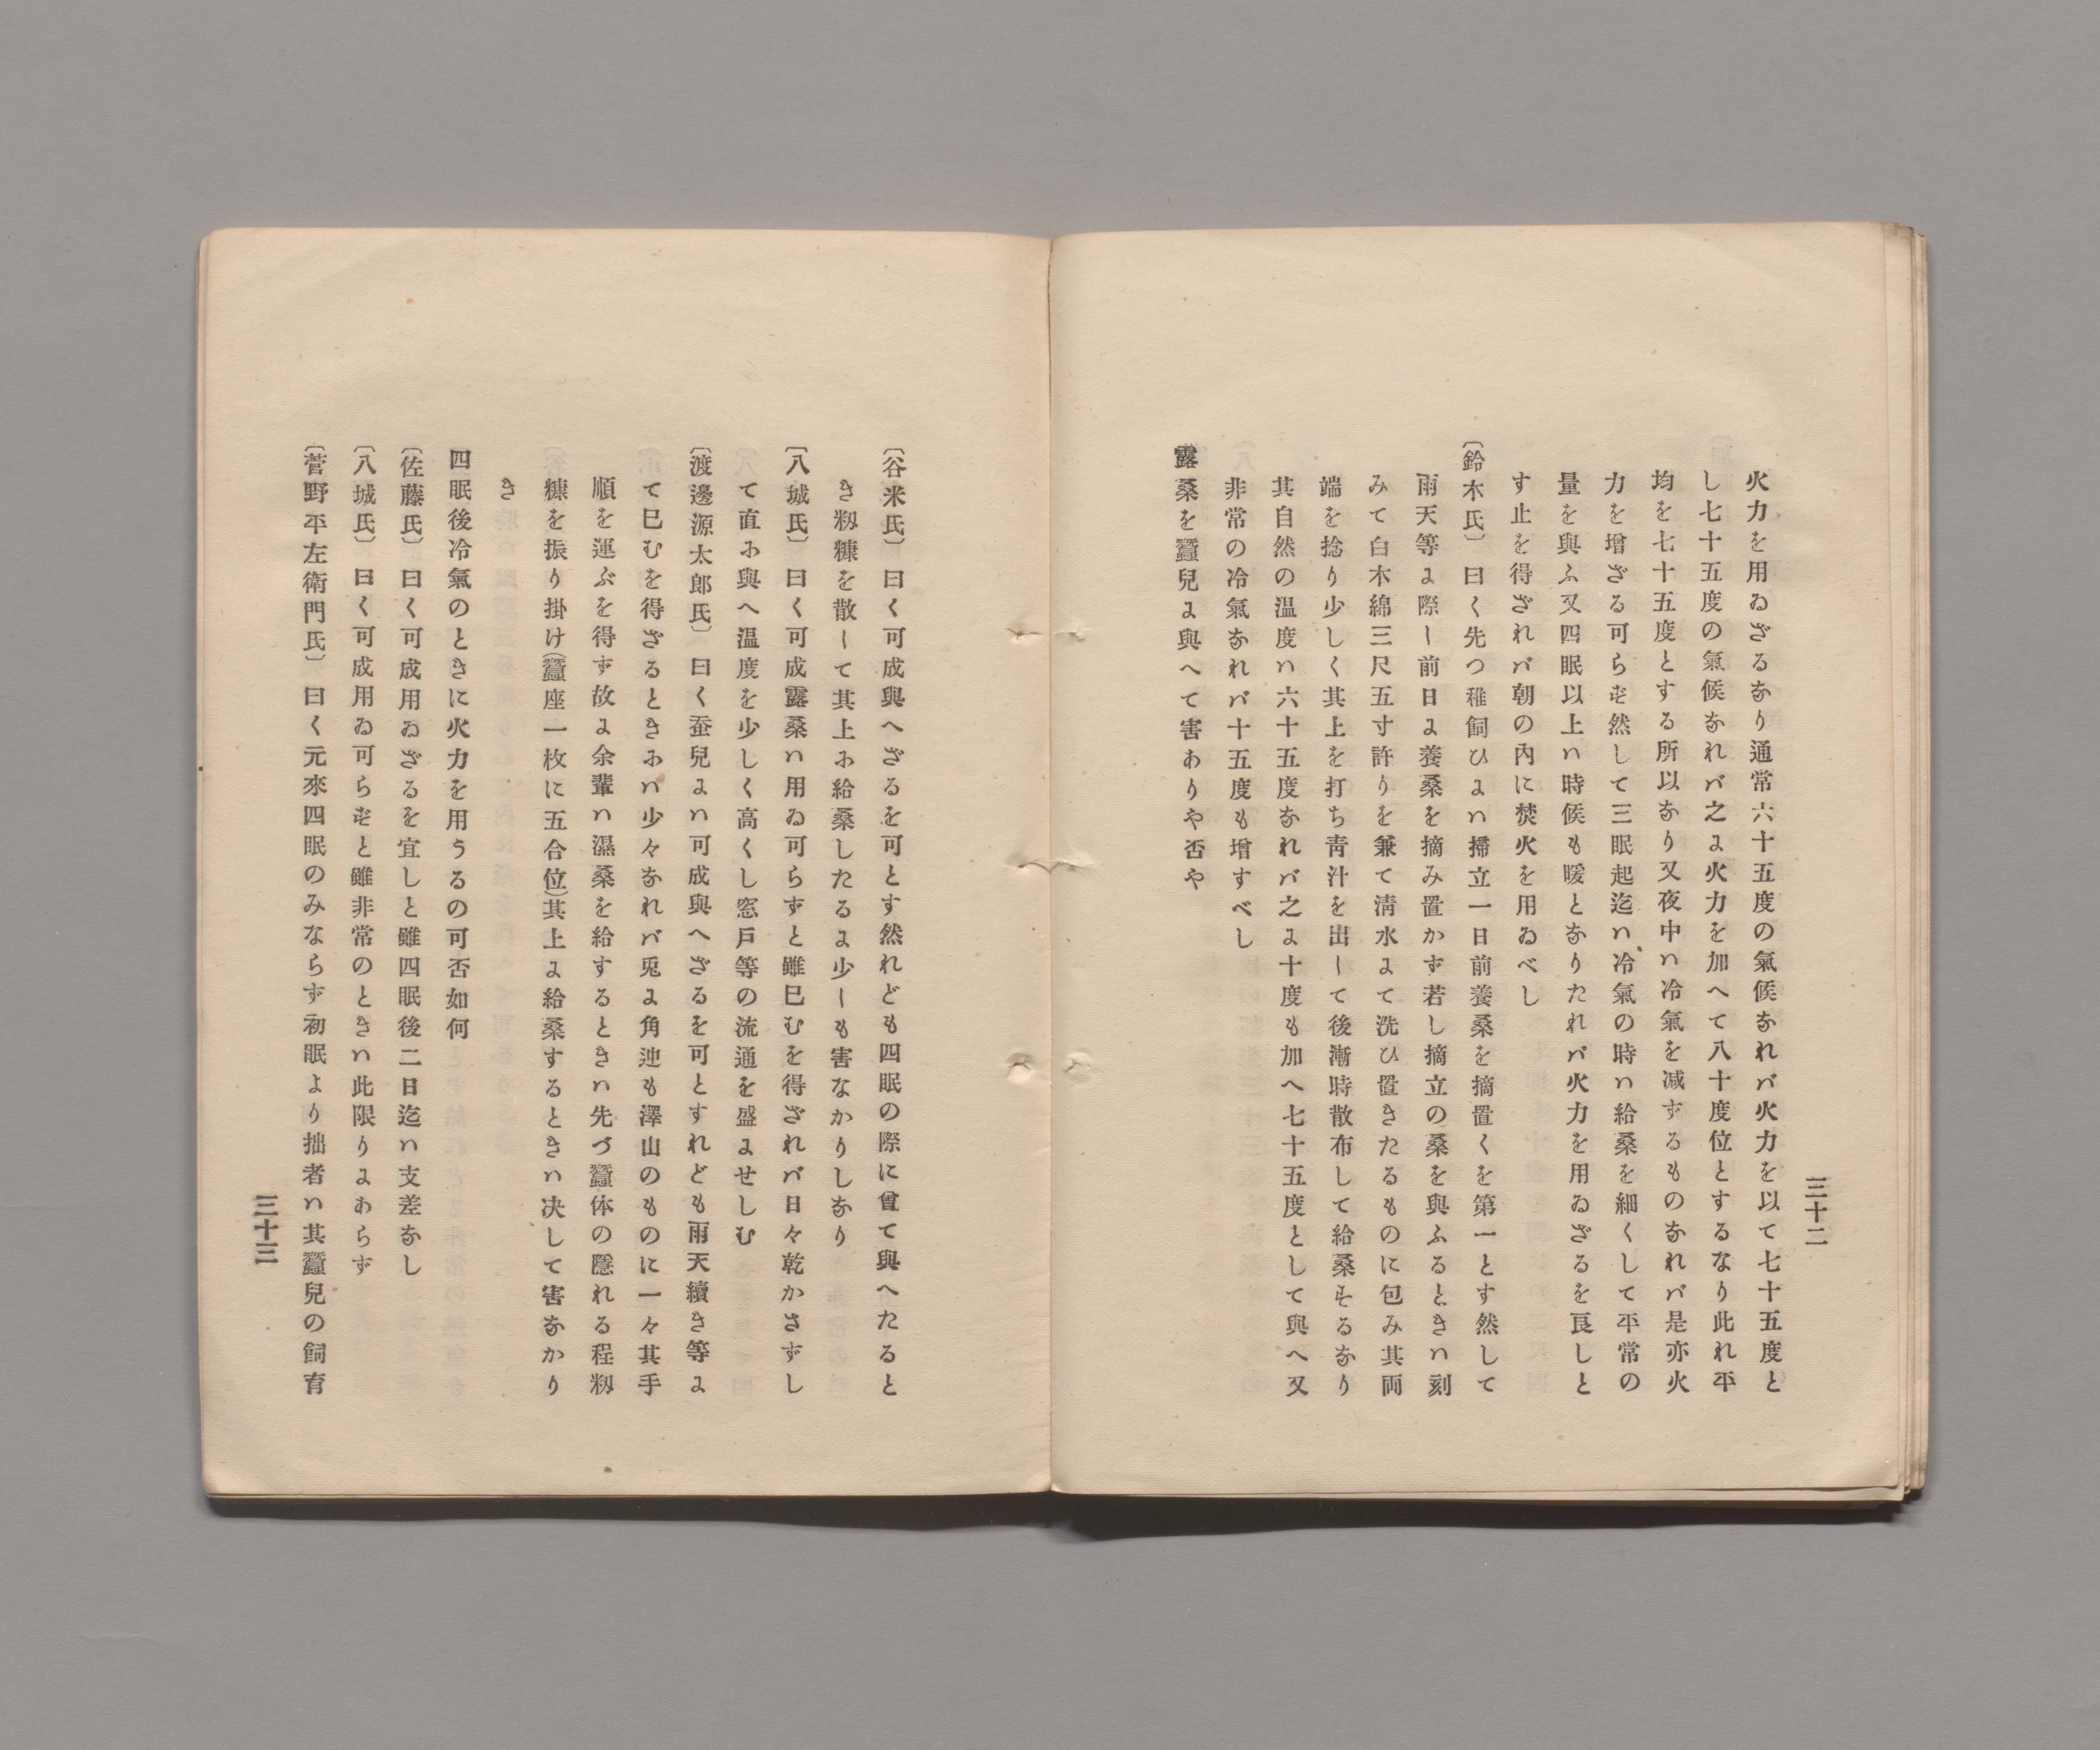 三十二
火力を用ゐざるなり通常六十五度の氣候なれバ火力を以て七十五度と
し七十五度の氣候なれバ之に火力を加へて八十度位とするなり此れ平
均を七十五度とする所以なり又夜中ハ冷氣を減ずるものなれバ是亦火
力を增ざる可らず然して三眠起迄ハ冷氣の時ハ給桑を細くして平常の
量を與ふ又四眠以上ハ時候も暖となりたれバ火力を用ゐざるを良しと
す止を得ざれバ朝の內に焚火を用ゐべし
〔鈴木氏〕曰く先つ稚飼ひにハ掃立一日前養桑を摘置くを第一とす然して
雨天等に際し前日に養桑を摘み置かず若し摘立の桑を與ふるときハ刻
みて白木綿三尺五寸許りを兼て淸水にて洗ひ置きたるものに包み其両
端を捻り少しく其上を打ち靑汁を出して後漸時散布して給桑するなり
其自然の温度ハ六十五度なれバ之に十度も加へ七十五度として與へ又
非常の冷氣なれバ十五度も增すべし
露桑を蠶兒に與へて害ありや否や
〔谷米氏〕曰く可成與へざるを可とす然れども四眠の際に曾て與へたると
き籾糠を散して其上に給桑したるに少しも害なかりしなり
〔八城氏〕曰く可成露桑ハ用ゐ可らずと雖已むを得ざれバ日々乾かさずし
て直に與へ温度を少しく高くし窓戸等の流通を盛にせしむ
〔渡邊源太郎氏〕曰く蚕兒にハ可成與へざるを可とすれども雨天續き等に
て已むを得ざるときにハ少々なれバ兎に角迚も澤山のものに一々其手
順を運ぶを得ず故に余輩ハ濕桑を給するときハ先づ蠶体の隱れる程籾
糠を振り掛け(蠶座一枚に五合位)其上に給桑するときハ决して害なかり
き
四眠後冷氣のときに火力を用うるの可否如何
〔佐藤氏〕曰く可成用ゐざるを宜しと雖四眠後二日迄ハ支差なし
〔八城氏〕曰く可成用ゐ可らずと雖非常のときハ此限りにあらず
〔菅野平左衛門氏〕曰く元來四眠のみならず初眠より拙者ハ其蠶兒の飼育
三十三